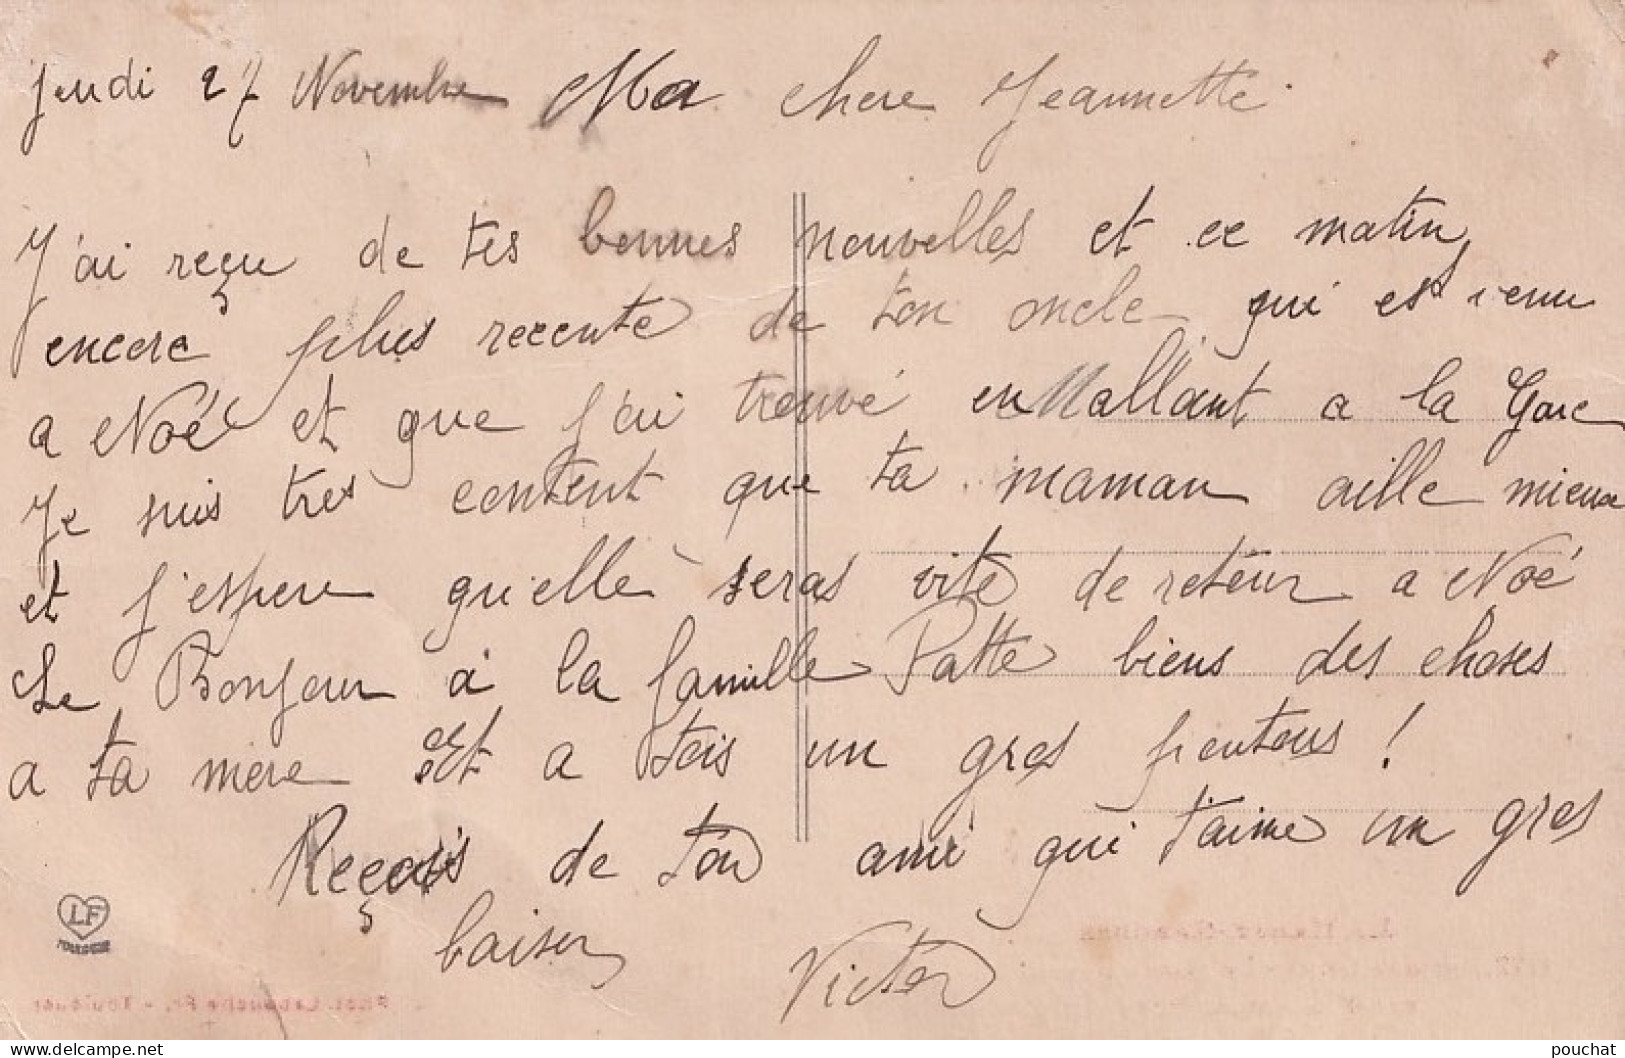 Jeudi 27 Novembre Ma chere Jeannette.
J'ai reçu de tes bonnes nouvelles et ce matin
encore plus recente de ton oncle qui est venu
a Noé et que j'ai trouvé en allant a la Gare
Je suis tres content que ta maman aille mieux
et j'espere qu'elle seras vite de retour a Noé
Le Bonjour à la famille Patte biens des choses
a ta mere Et a tois un gros
Reçois de ton ami qui t'aime un gros
baiser Victor
LF
TOULOUSE
Phot. Labouche Fr. - Toulouse
pouchat
www.delcampe.net